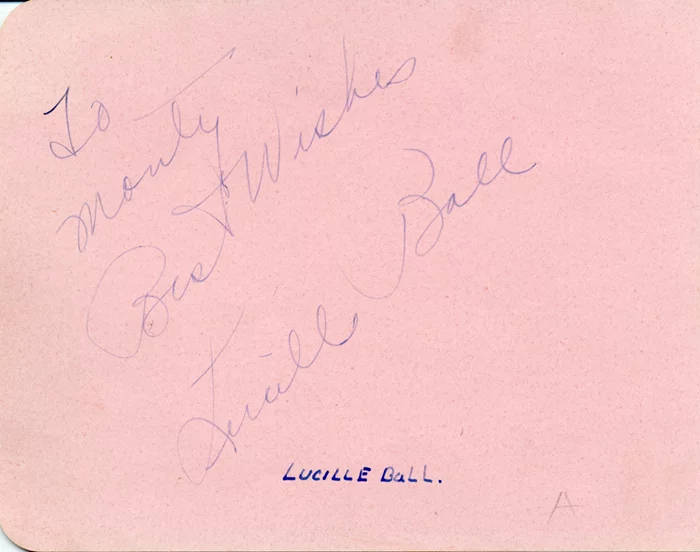 To
Monty
Best Wishes
Lucille Ball
LUCILLE BaLL.
A